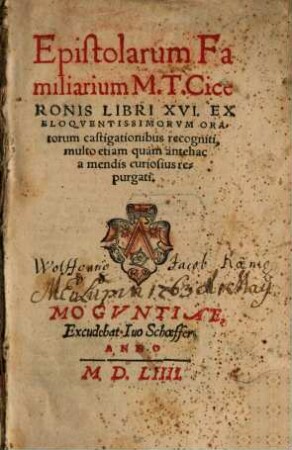 Epistolarum Fa
miliarium M.T.Cice
RONIS LIBRI XVI. EX
ELOQVENTISSIMORVM ORA-
torum castigationibus recogniti,
multo etiam quàm antehac
a mendis curiosius re-
purgati.
Jacob
1763 d.
May
MOGVNTIAE,
Excudebat Iuo Schœffer
ANNO
M. D. LIIII.